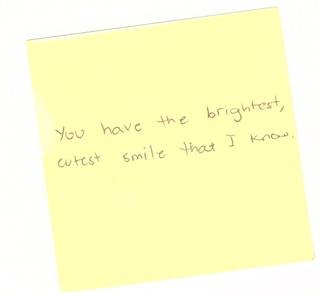 You have the brightest,
cutest smile that I know.